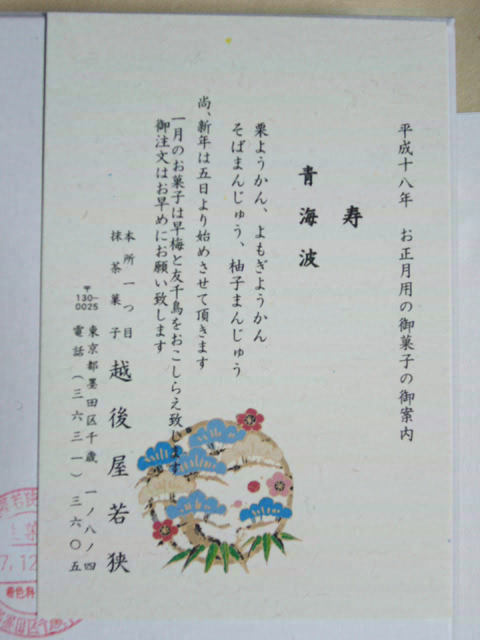 平成十八年　お正月用の御菓子の御案内
寿
青海波
栗ようかん、よもぎようかん
そばまんじゅう、柚子まんじゅう
尚、新年は五日より始めさせて頂きます
一月のお菓子は早梅と友千鳥をおこしらえ致します
御注文はお早めにお願い致します
本所一つ目
抹茶菓子
越後屋若狭
〒130-0025
東京都墨田区千歳一ノ八ノ四
電話（三六三一）三六〇五